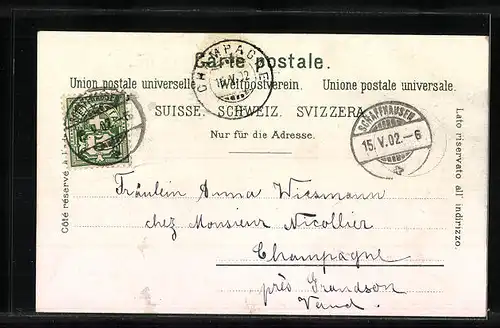 Carte postale.
CHAMPAGNE
Union postale universelle. Weltpostverein. Unione postale universale.
SUISSE. SCHWEIZ. SVIZZERA.
Nur für die Adresse.
SCHAFFHAUSEN
15.V.02.-6
Côté réservé à
Lato riservato all indirizzo.
Fräulein Anna Wiesmann
chez Monsieur Nicollier
Champagne
près Grandson
Vaud.